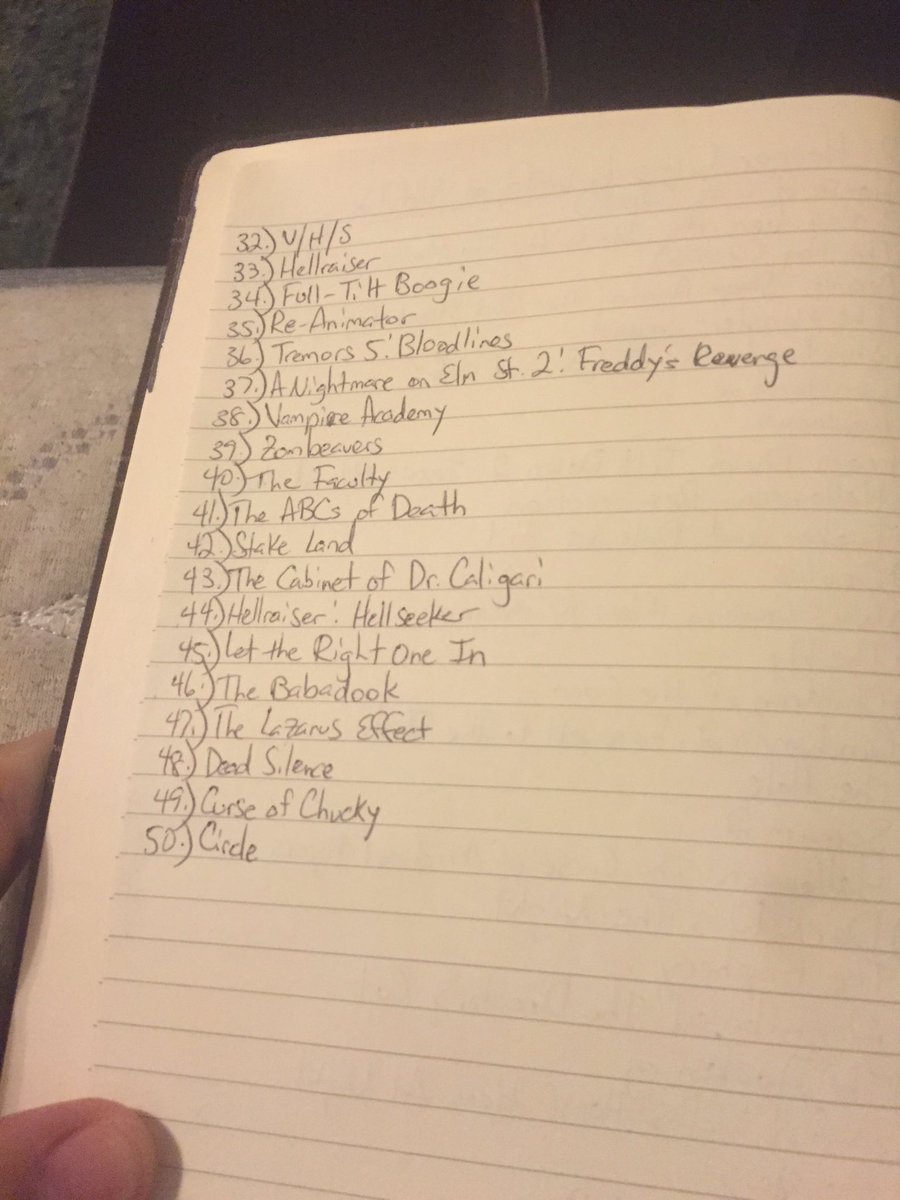 32.) V/H/S
33.) Hellraiser
34.) Full-Tilt Boogie
35.) Re-Animator
36.) Tremors 5: Bloodlines
37.) A Nightmare on Elm St. 2: Freddy's Revenge
38.) Vampire Academy
39.) Zombeavers
40.) The Faculty
41.) The ABCs of Death
42.) Stake Land
43.) The Cabinet of Dr. Caligari
44.) Hellraiser: Hellseeker
45.) Let the Right One In
46.) The Babadook
47.) The Lazarus Effect
48.) Dead Silence
49.) Curse of Chucky
50.) Circle